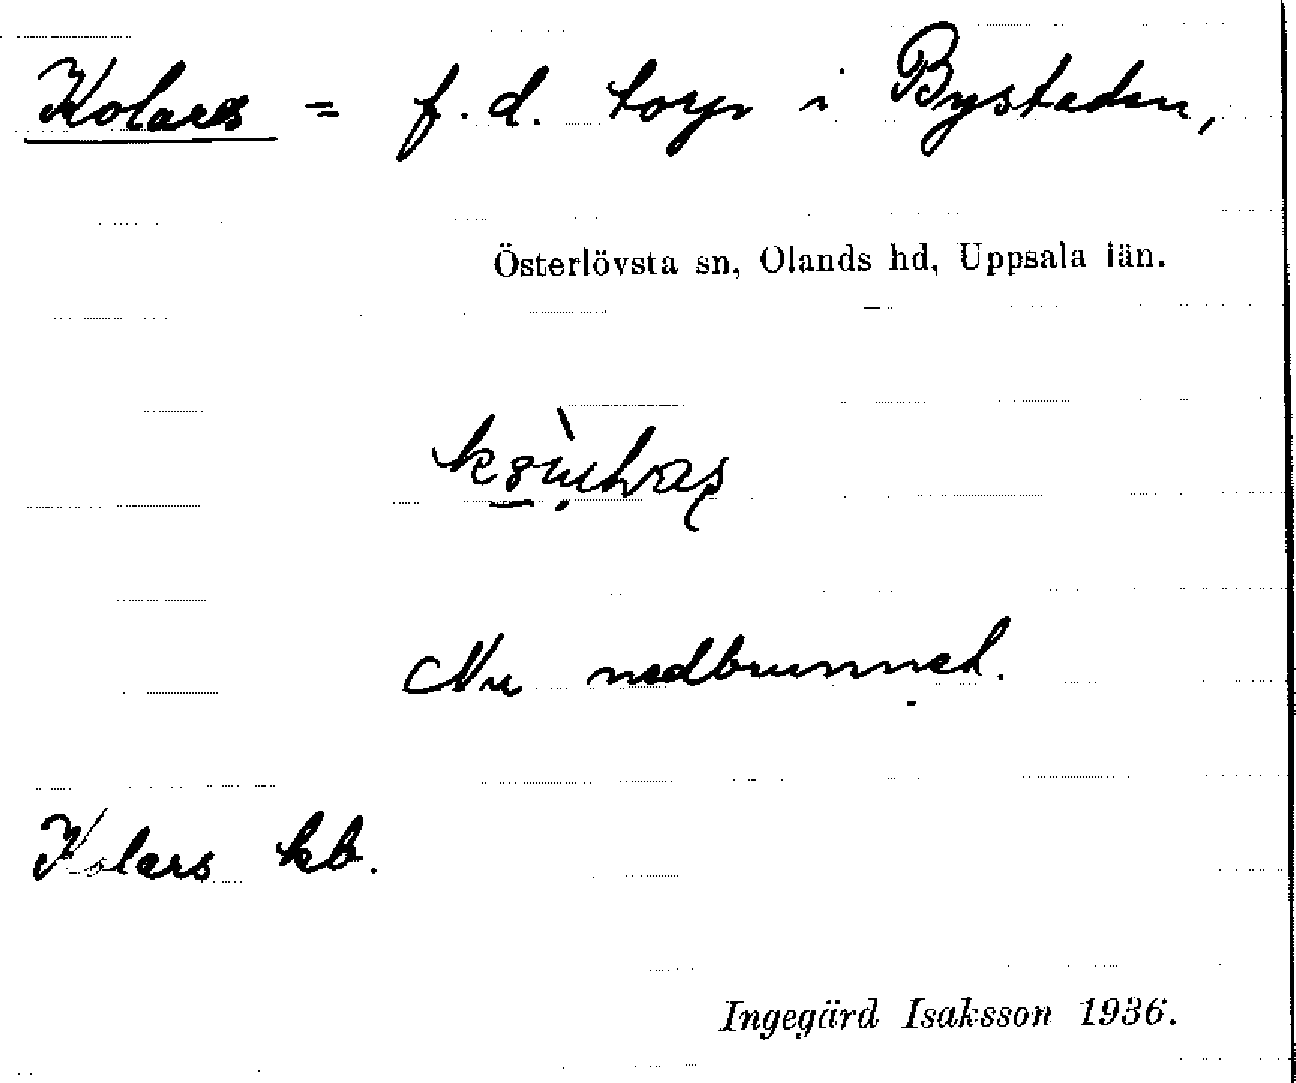 Kolares = f.d. torp i Bystaden,
Österlövsta sn, Olands hd, Uppsala län.
Nu nedbrunnet.
Kolars kb.
Ingegärd Isaksson 1936.